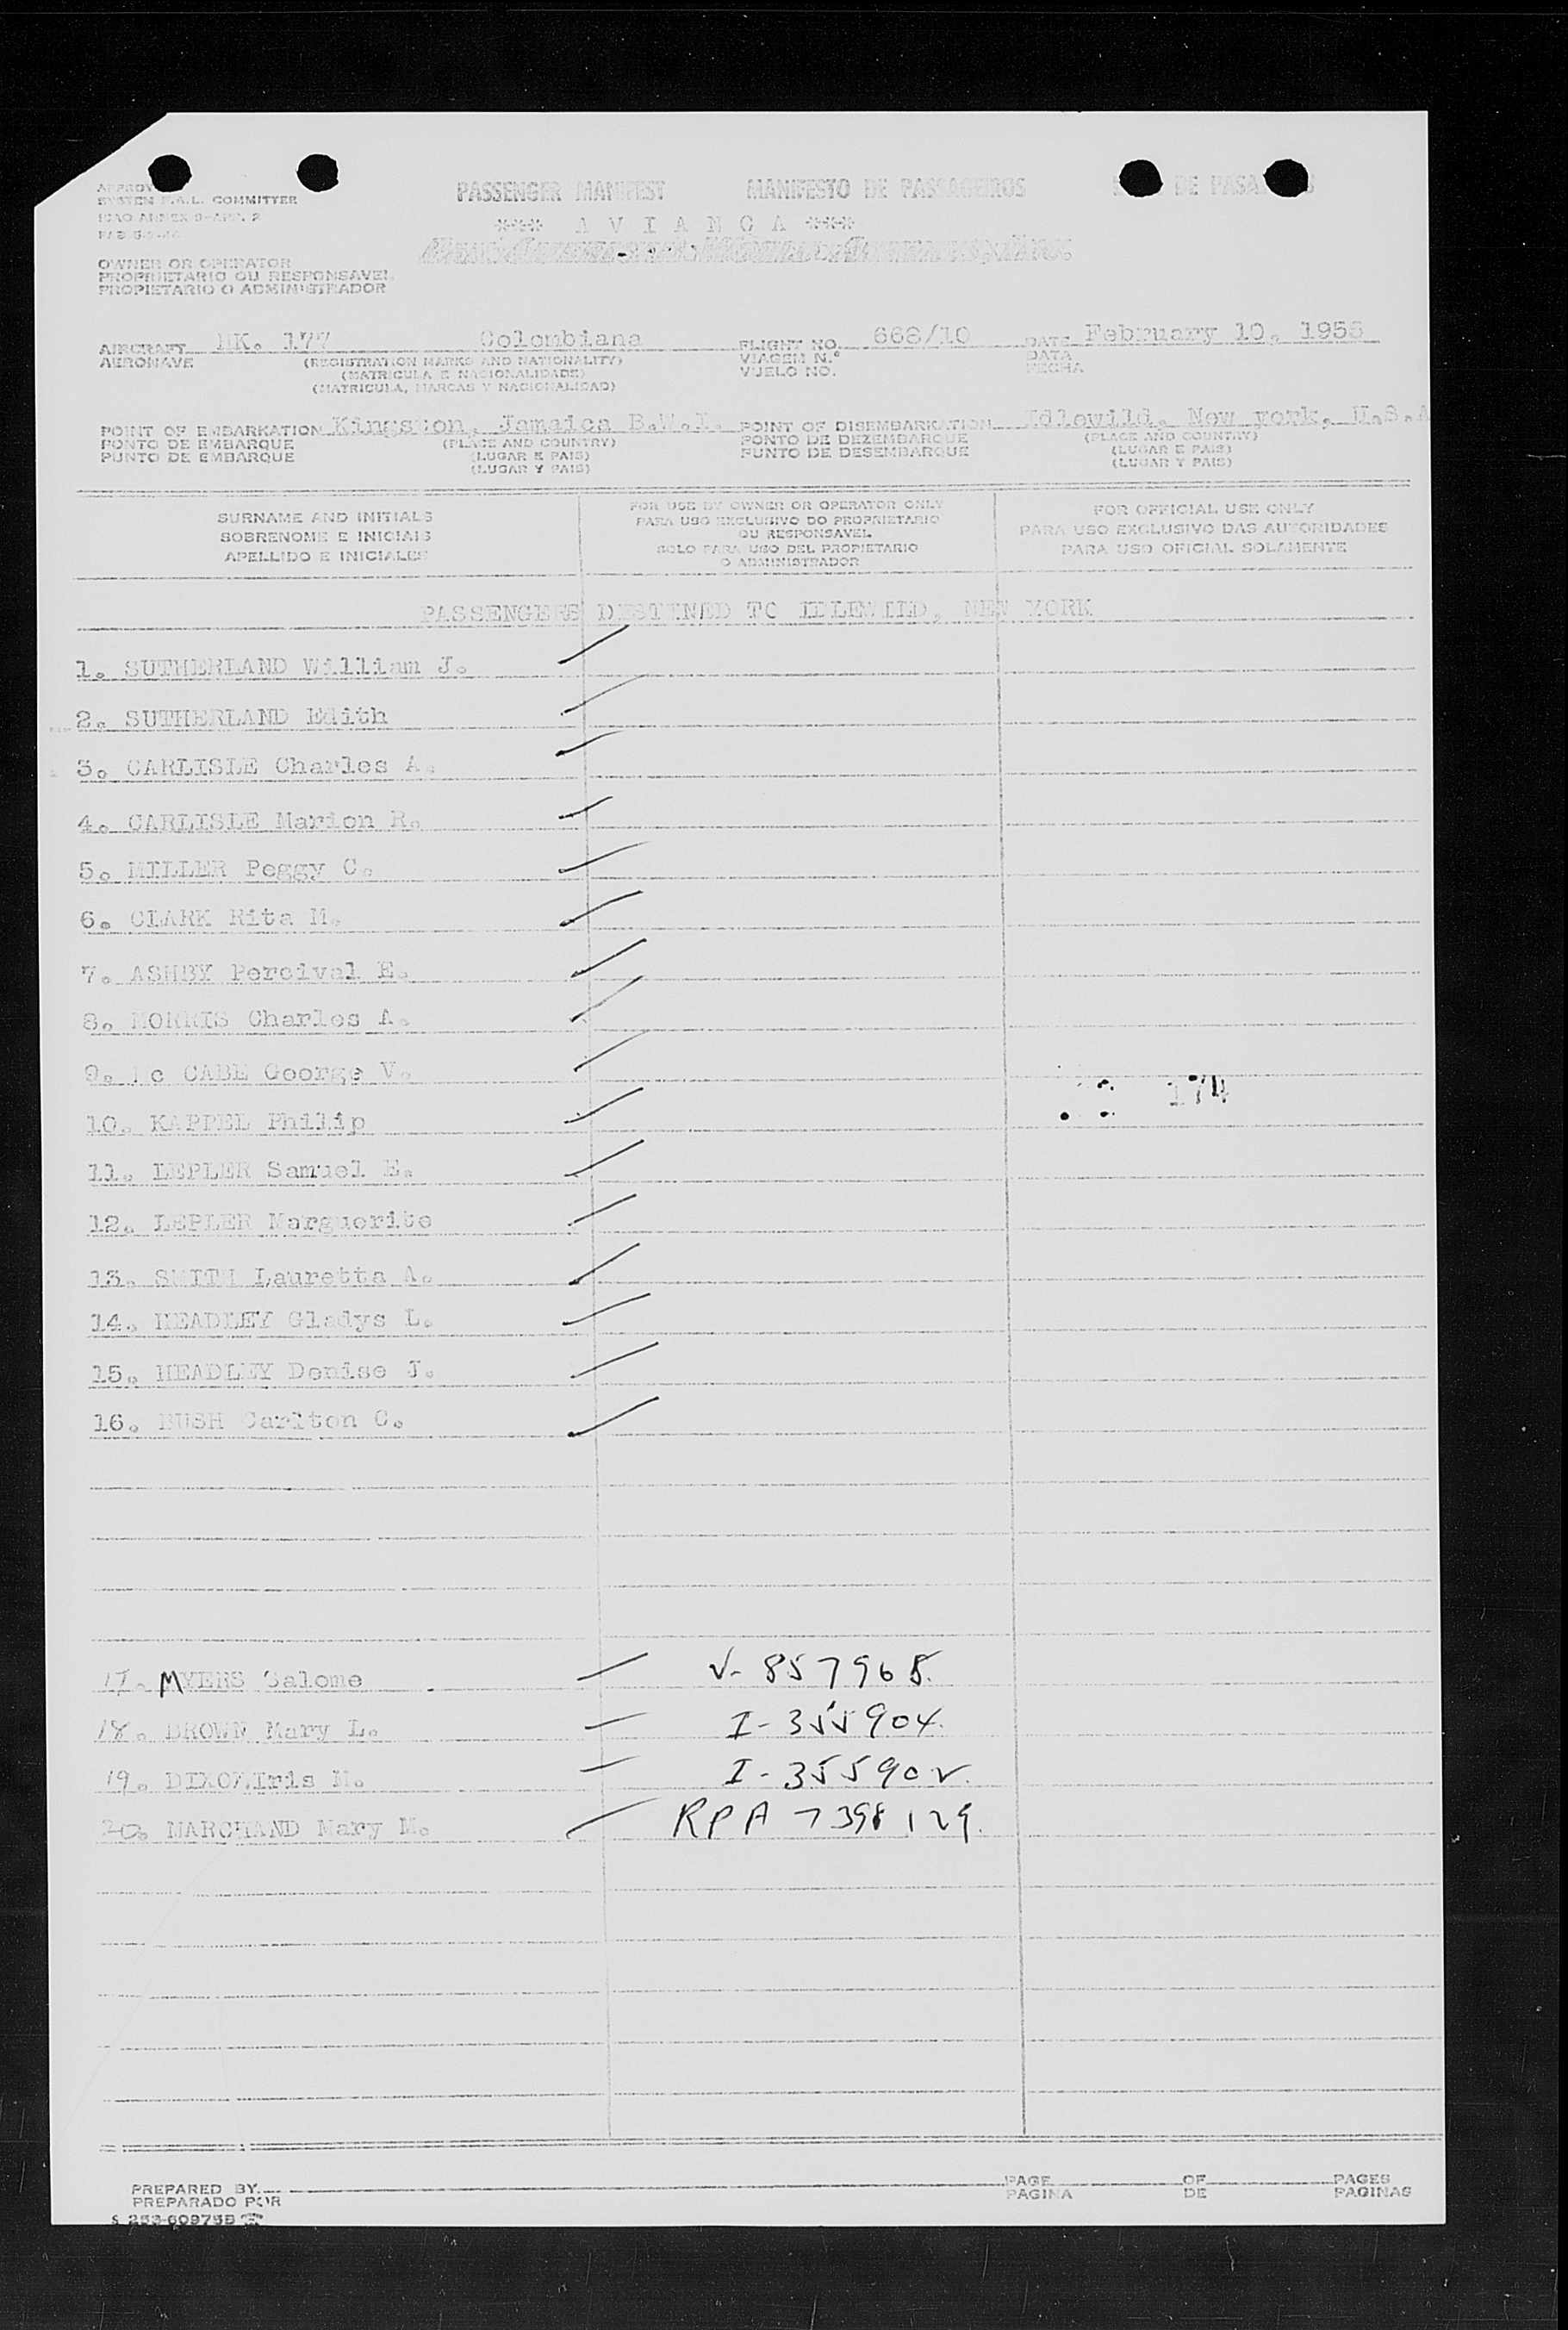 PASSENGER MANIFEST MANIFESTO DE PASSAGEIROS DE PASA
SYSTEM F.A.L. COMMITTEE
ICAO ANNEX 9-APP. 2
*** A V I A N C A ***
OWNER OR OPERATOR
PROPRIETARIO OU RESPONSAVEL
PROPIETARIO O ADMINISTRADOR
AIRCRAFT HK. 177 Colombiana FLIGHT NO. 668/10 DATE February 10, 1958
AERONAVE (REGISTRATION MARKS AND NATIONALITY) VIAGEM N.º DATA
(MATRICULA E NACIONALIDADE) VUELO NO. FECHA
(MATRICULA, MARCAS Y NACIONALIDAD)
POINT OF EMBARKATION Kingston, Jamaica B.W.I. POINT OF DISEMBARKATION Idlewild, New york, U.S.A
PONTO DE EMBARQUE (PLACE AND COUNTRY) PONTO DE DEZEMBARQUE (PLACE AND COUNTRY)
PUNTO DE EMBARQUE (LUGAR E PAIS) PUNTO DE DESEMBARQUE (LUGAR E PAIS)
(LUGAR Y PAIS) (LUGAR Y PAIS)
SURNAME AND INITIALS
SOBRENOME E INICIAIS
APELLIDO E INICIALES
FOR USE BY OWNER OR OPERATOR ONLY
PARA USO EXCLUSIVO DO PROPRIETARIO
OU RESPONSAVEL
SOLO PARA USO DEL PROPIETARIO
O ADMINISTRADOR
FOR OFFICIAL USE ONLY
PARA USO EXCLUSIVO DAS AUTORIDADES
PARA USO OFICIAL SOLAMENTE
PASSENGERS DESTINED TO IDLEWILD, NEW YORK
1. SUTHERLAND William J.
2. SUTHERLAND Edith
3. CARLISLE Charles A.
4. CARLISLE Marion R.
5. MILLER Peggy C.
6. CLARK Rita M.
7. ASHBY Percival E.
8. MORRIS Charles A.
9. Mc CABE George V.
174
10. KAPPEL Philip
11. LEPLER Samuel E.
12. LEPLER Marguerite
13. SMITH Lauretta A.
14. HEADLEY Gladys L.
15. HEADLEY Denise J.
16. BUSH Carlton C.
17. MYERS Salome V- 857968.
18. BROWN Mary L. I- 355904.
19. DIXON Iris M. I- 355902.
20. MARCHAND Mary M. RPA 7398129.
PREPARED BY PAGE OF PAGES
PREPARADO POR PAGINA DE PAGINAS
S 253-60975B